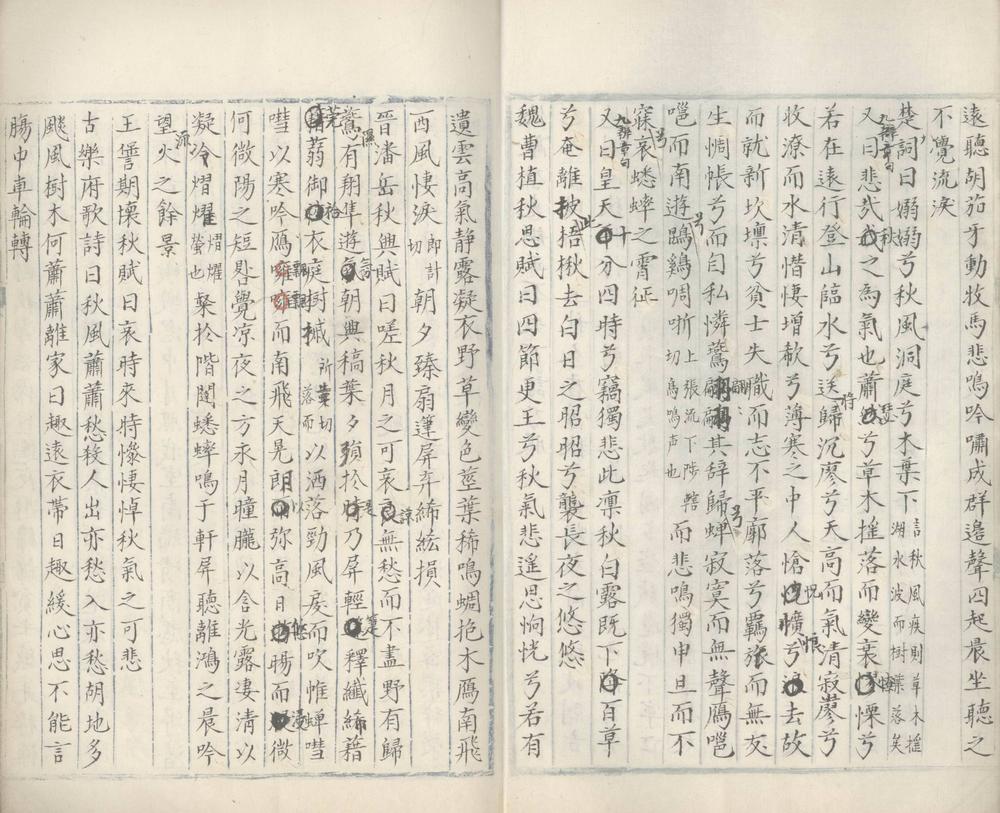 遠聽胡笳牙動牧馬悲鳴吟嘯成群邉聲四起晨坐聽之
不覺流淚
楚詞曰嫋嫋兮秋風洞庭兮木葉下言秋風疾則草木摇湘水波而樹葉落矣
又曰悲㢤秋之為氣也蕭瑟兮草木摇落而變衰憭慄兮
若在逺行登山臨水兮送將歸沉寥兮天高而氣清寂寥兮
收潦而水清憯悽增欷兮薄寒之中人愴怳懭悢兮去故
而就新坎壈兮貧士失職而志不平廓落兮羇旅而無友
生惆悵兮而自私憐鷰翩翩其辭歸兮蟬寂寞而無聲鴈嗈
嗈而南遊兮鵾鷄啁哳上張流下陟轄切鳥鳴声也而悲鳴獨申旦而不
寐兮哀蟋蟀之霄征
九辯章句
又曰皇天平分四時兮竊獨悲此凜秋白露既下百草
兮奄離披此梧楸去白日之昭昭兮襲長夜之悠悠
魏曹植秋思賦曰四節更王兮秋氣悲遥思惝恍兮若有
遺雲高氣静露凝衣野草變色莖葉稀鳴蜩抱木鴈南飛
西風悽淚即計切朝夕臻扇箑屏弃絺綌損
晉潘岳秋興賦曰嗟秋月之可哀諒無愁而不盡野有歸
鷰隰有翔隼遊氛朝興稿葉夕殞於是乃屏輕箑釋纖絺藉
莞蒻御袷衣庭樹槭所隻切葉落而以洒落勁風戾而吹帷蟬嘒
嘒以寒吟鴈飄飄而南飛天晃朗以弥高日悠暘而浸微
何微陽之短晷覺凉夜之方永月曈朧以含光露凄清以
凝冷熠燿熠燿螢也粲扵階闥蟋蟀鳴于軒屏聽離鴻之晨吟
望流火之餘景
王讋期懷秋賦曰哀時來時慘悽悼秋氣之可悲
古樂府歌詩曰秋風蕭蕭愁殺人出亦愁入亦愁胡地多
飈風樹木何蕭蕭離家日趣遠衣帶日趣緩心思不能言
腸中車輪轉